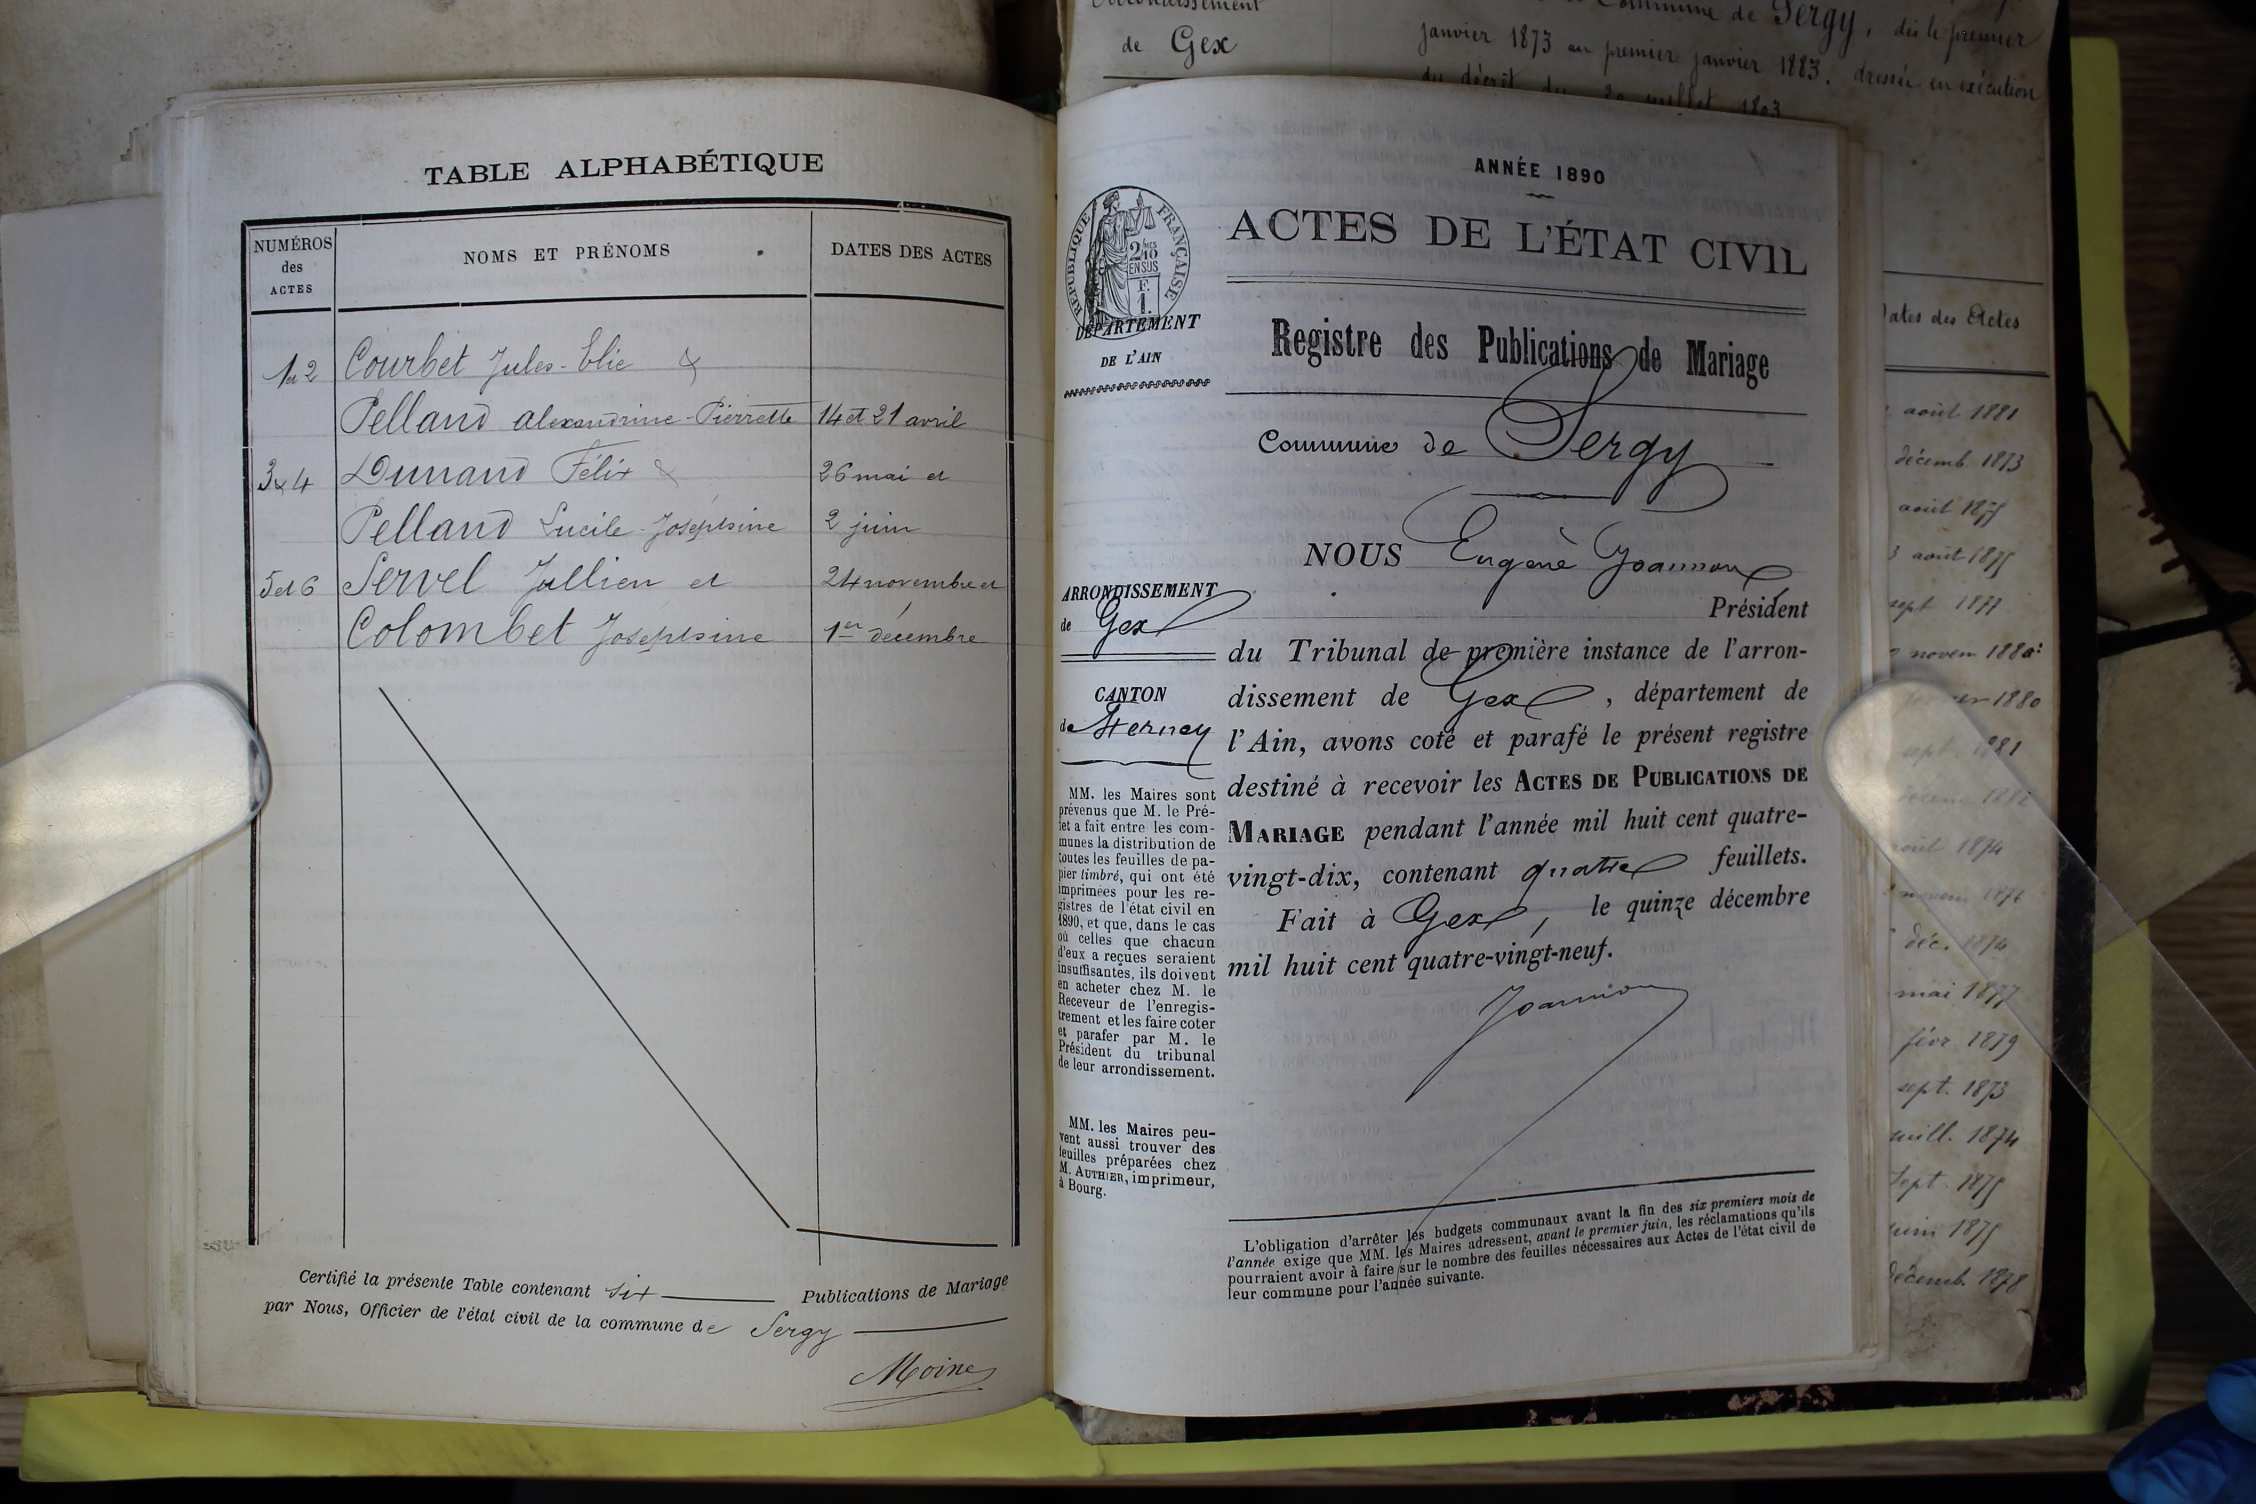 TABLE ALPHABÉTIQUE
NUMÉROS
des
ACTES
NOMS ET PRÉNOMS
DATES DES ACTES
1 et 2 Courbet Jules-Elie &
Pelland Alexandrine-Pierrette 14 et 21 avril
3 & 4 Dunand Félix & 26 mai et
Pelland Lucile-Joséphine 2 juin
5 et 6 Servel Jullien et 24 novembre et
Colombet Joséphine 1er décembre
Certifié la présente Table contenant six Publications de Mariage
par Nous, Officier de l'état civil de la commune de Sergy
Moine
de Gex
Commune de Sergy, dès le premier
janvier 1873 au premier janvier 1883, dressée en exécution
du décret du 20 juillet 1803
ANNÉE 1890
ACTES DE L'ÉTAT CIVIL
RÉPUBLIQUE FRANÇAISE
2/10
EN SUS
F.
1.
DÉPARTEMENT
DE L'AIN
Registre des Publications de Mariage
Commune de Sergy
NOUS Eugène Joannon
Président
du Tribunal de première instance de l'arron-
dissement de Gex, département de
l'Ain, avons coté et parafé le présent registre
destiné à recevoir les ACTES DE PUBLICATIONS DE
MARIAGE pendant l'année mil huit cent quatre-
vingt-dix, contenant quatre feuillets.
Fait à Gex, le quinze décembre
mil huit cent quatre-vingt-neuf.
Joannon
ARRONDISSEMENT
de Gex
CANTON
de Ferney
MM. les Maires sont
prévenus que M. le Pré-
fet a fait entre les com-
munes la distribution de
toutes les feuilles de pa-
pier timbré, qui ont été
imprimées pour les re-
gistres de l'état civil en
1890, et que, dans le cas
où celles que chacun
d'eux a reçues seraient
insuffisantes, ils doivent
en acheter chez M. le
Receveur de l'enregis-
trement et les faire coter
et parafer par M. le
Président du tribunal
de leur arrondissement.
MM. les Maires peu-
vent aussi trouver des
feuilles préparées chez
M. AUTHIER, imprimeur,
à Bourg.
L'obligation d'arrêter les budgets communaux avant la fin des six premiers mois de
l'année exige que MM. les Maires adressent, avant le premier juin, les réclamations qu'ils
pourraient avoir à faire sur le nombre des feuilles nécessaires aux Actes de l'état civil de
leur commune pour l'année suivante.
Dates des Actes
août 1881
décemb. 1873
août 1875
août 1875
sept 1877
novem 1880
1880
sept. 1881
1882
août 1874
novem 1876
déc. 1874
mai 1877
févr 1879
sept. 1873
juill. 1874
Sept. 1875
juin 1875
décemb. 1878